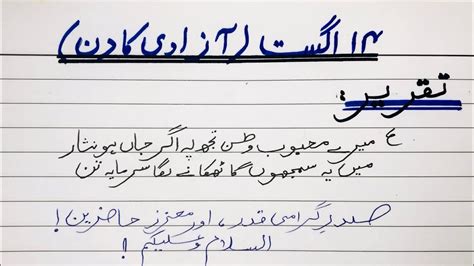 ۱۴ اگست (آزادی کا دن)
تقریر:
ع میرے محبوب وطن تجھ پہ اگر جاں ہو نثار
میں یہ سمجھوں گا ٹھکانے لگا سرمایہ تن
صدرِ گرامی قدر، اور معزز حاضرین!
السلام وعلیکم!